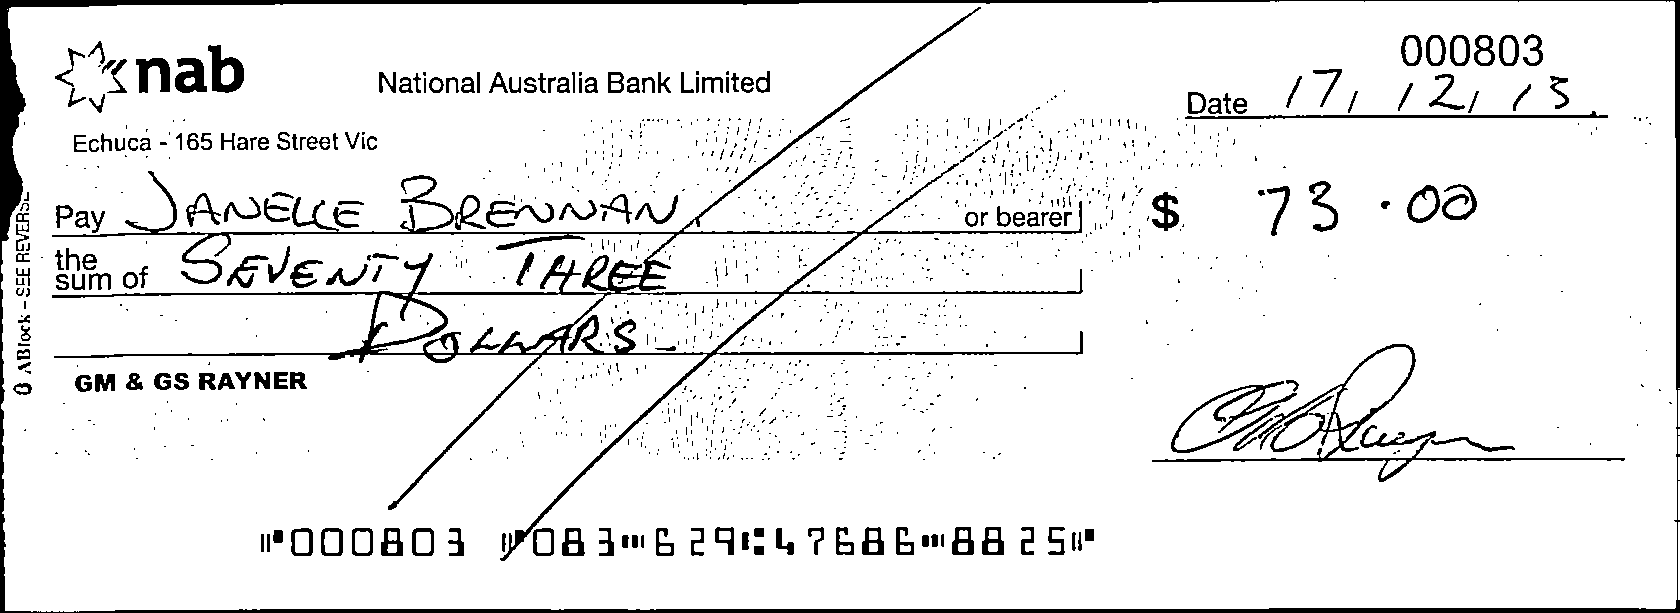 nab
National Australia Bank Limited
000803
Date 17, 12, 15
Echuca - 165 Hare Street Vic
Pay JANELLE BRENNAN or bearer
$ 73.00
the sum of SEVENTY THREE
DOLLARS
GM & GS RAYNER
ABlock - SEE REVERSE
⑈000803 ⑈083⑉629⑆47686⑉8825⑈